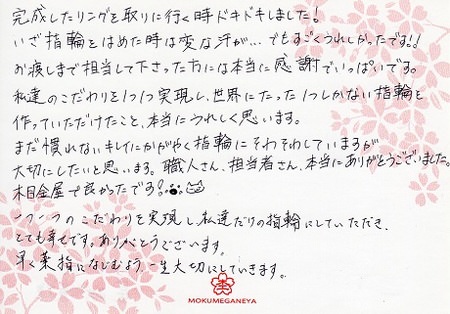 完成したリングを取りに行く時ドキドキしました!
いざ指輪をはめた時は変な汗が…でもすごくうれしかったです!!
お渡しまで担当して下さった方には本当に感謝でいっぱいです。
私達のこだわりを1つ1つ実現し、世界にたった1つしかない指輪を
作っていただけたこと、本当にうれしく思います。
まだ慣れないキレイにかがやく指輪にそわそわしていますが
大切にしたいと思います。職人さん、担当者さん、本当にありがとうございました。
木目金屋で良かったです?
一つ一つのこだわりを実現し私達だけの指輪にしていただき、
とても幸せです。ありがとうございます。
早く薬指になじむよう、一生大切にしていきます。
MOKUMEGANEYA